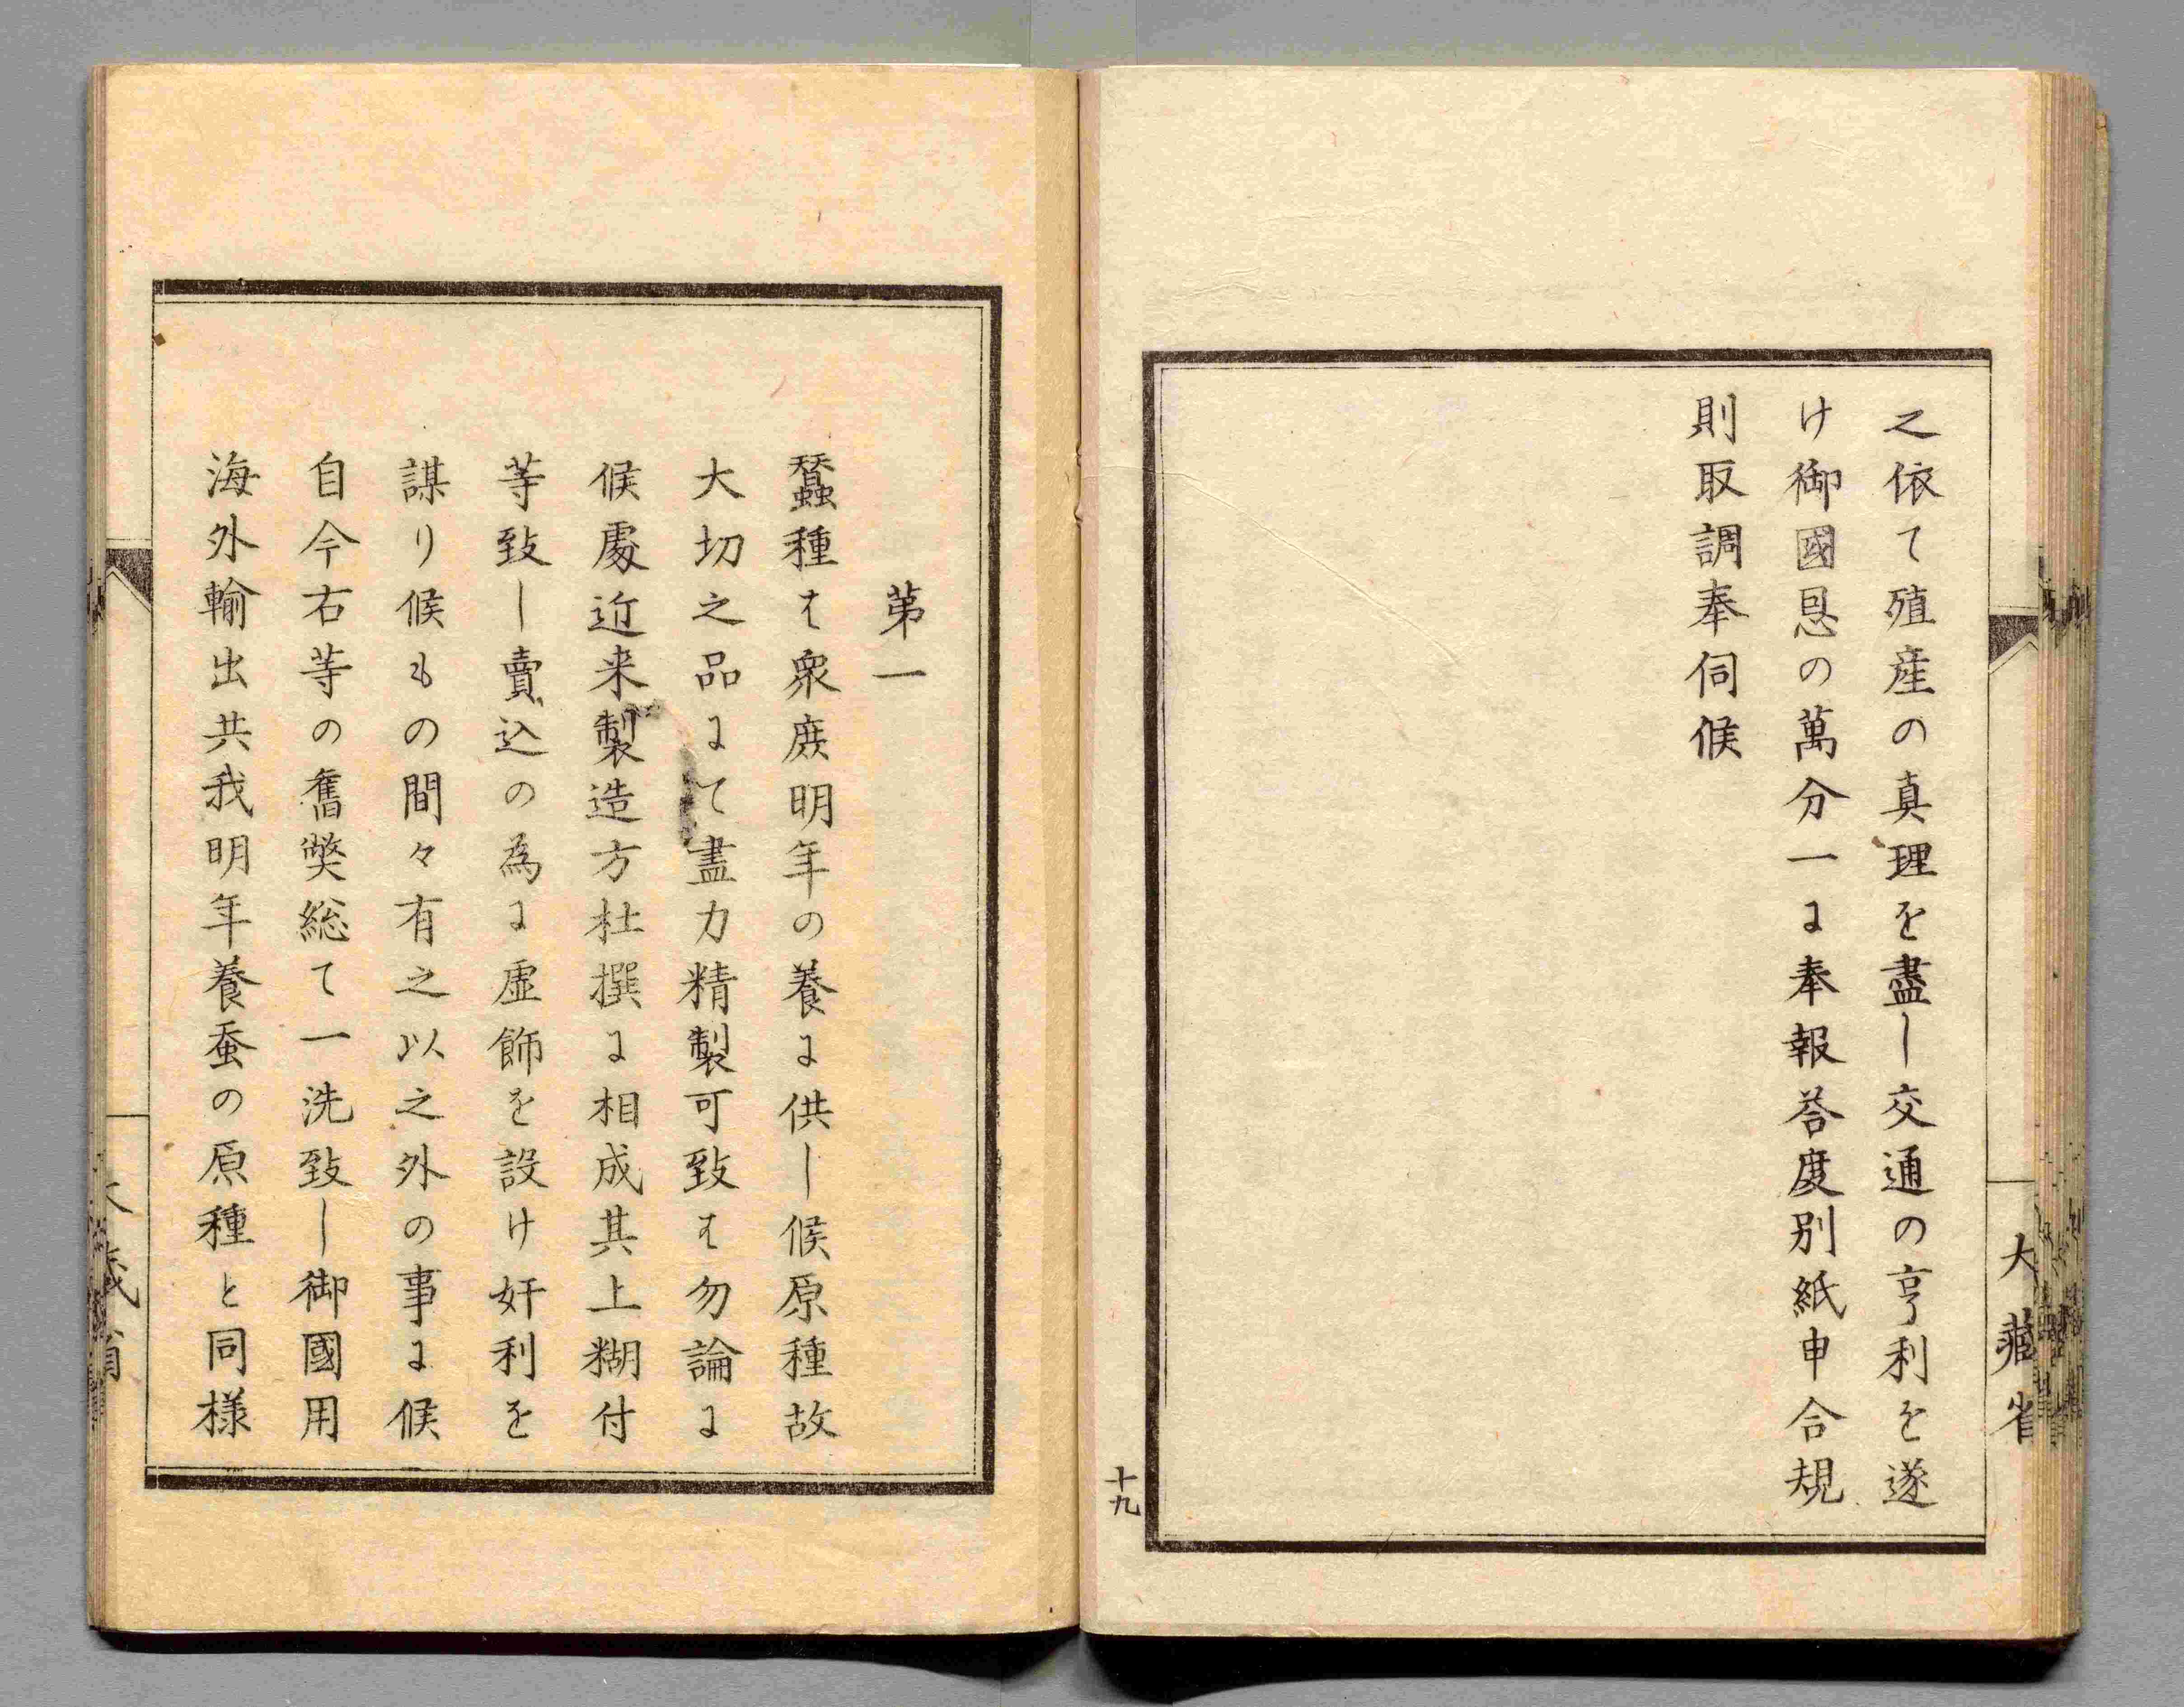 之依て殖産の真理を盡し交通の亨利を遂
け御國恩の萬分一に奉報荅度別紙申合規
則取調奉伺候
大藏省
十九
第一
蠶種は衆庶明年の養に供し候原種故
大切之品にて盡力精製可致は勿論に
候處近来製造方杜撰に相成其上糊付
等致し賣込の為に虚飾を設け奸利を
謀り候もの間々有之以之外の事に候
自今右等の舊弊総て一洗致し御國用
海外輸出共我明年養蚕の原種と同様
大蔵省